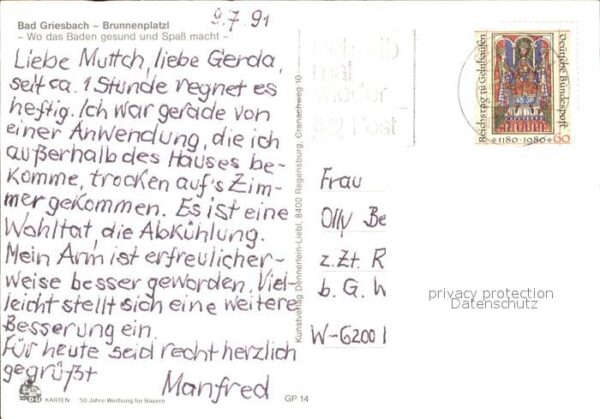 9.7.91
Bad Griesbach – Brunnenplatzl
– Wo das Baden gesund und Spaß macht –
Liebe Muttch, liebe Gerda,
seit ca. 1 Stunde regnet es
heftig. Ich war gerade von
einer Anwendung, die ich
außerhalb des Hauses be-
komme, trocken auf's Zim-
mer gekommen. Es ist eine
Wohltat, die Abkühlung.
Mein Arm ist erfreulicher-
weise besser geworden. Viel-
leicht stellt sich eine weitere
Besserung ein.
Für heute seid recht herzlich
gegrüßt
Manfred
KARTEN 50 Jahre Werbung für Bayern
GP 14
Kunstverlag Dennerlein-Liebl, 8400 Regensburg, Cranachweg 10
Schreib
mal
wieder
Post
Reichstag zu Gelnhausen
Deutsche Bundespost
1180 • 1980 60
Frau
Olly Be
z.Zt. R
b. G. W
W-6200
privacy protection
Datenschutz